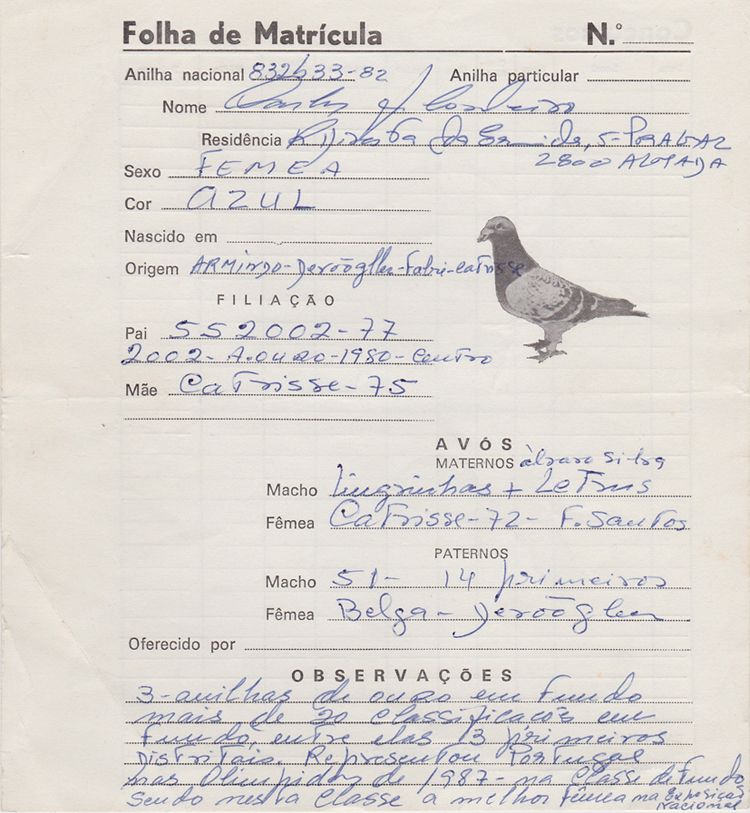 Folha de Matrícula N.º
Anilha nacional 832633-82 Anilha particular
Nome
Residência R Direita da 5-PRAGAL
2800 ALMADA
Sexo FEMEA
Cor AZUL
Nascido em
Origem ARMINDO-Derõõgllen-Fabri-Catrisse
FILIAÇÃO
Pai 552002-77
2002-A.OURO-1980-Centro
Mãe CaTrisse-75
AVÓS
MATERNOS àlvaro Silva
Macho Lingrinhas + LeTrus
Fêmea CaTrisse-72-F.SanTos
PATERNOS
Macho 51- 14 primeiros
Fêmea Belga-
Oferecido por
OBSERVAÇÕES
3-anilhas de ouro em Fundo
mais de 20 classificacõs em
Fundo, entre elas 13 primeiros
DisTriTais. RepresenTou PorTugal
nas Olimpidas de 1987-na Classe de Fundo
Sendo nesTa Classe a melhor Fêmea na Exposiçao
Nacional